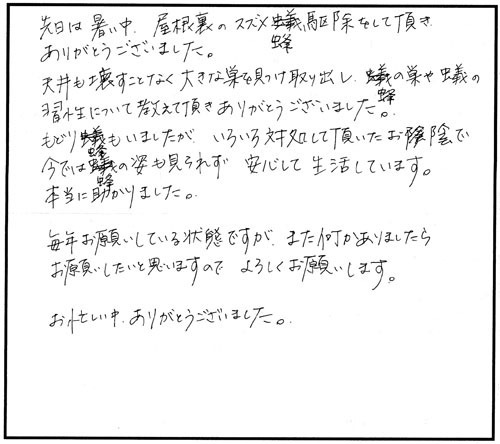 先日は暑い中、屋根裏のスズメ蜂駆除をして頂き
ありがとうございました。
天井も壊すことなく大きな巣を見つけ取り出し、蜂の巣や蟻の
習性について教えて頂きありがとうございました。
もどり蜂もいましたが、いろいろ対処して頂いたお陰で
今では蜂の姿も見られず 安心して生活しています。
本当に助かりました。
毎年お願いしている状態ですが、また何かありましたら
お願いしたいと思いますので よろしくお願いします。
お忙しい中、ありがとうございました。